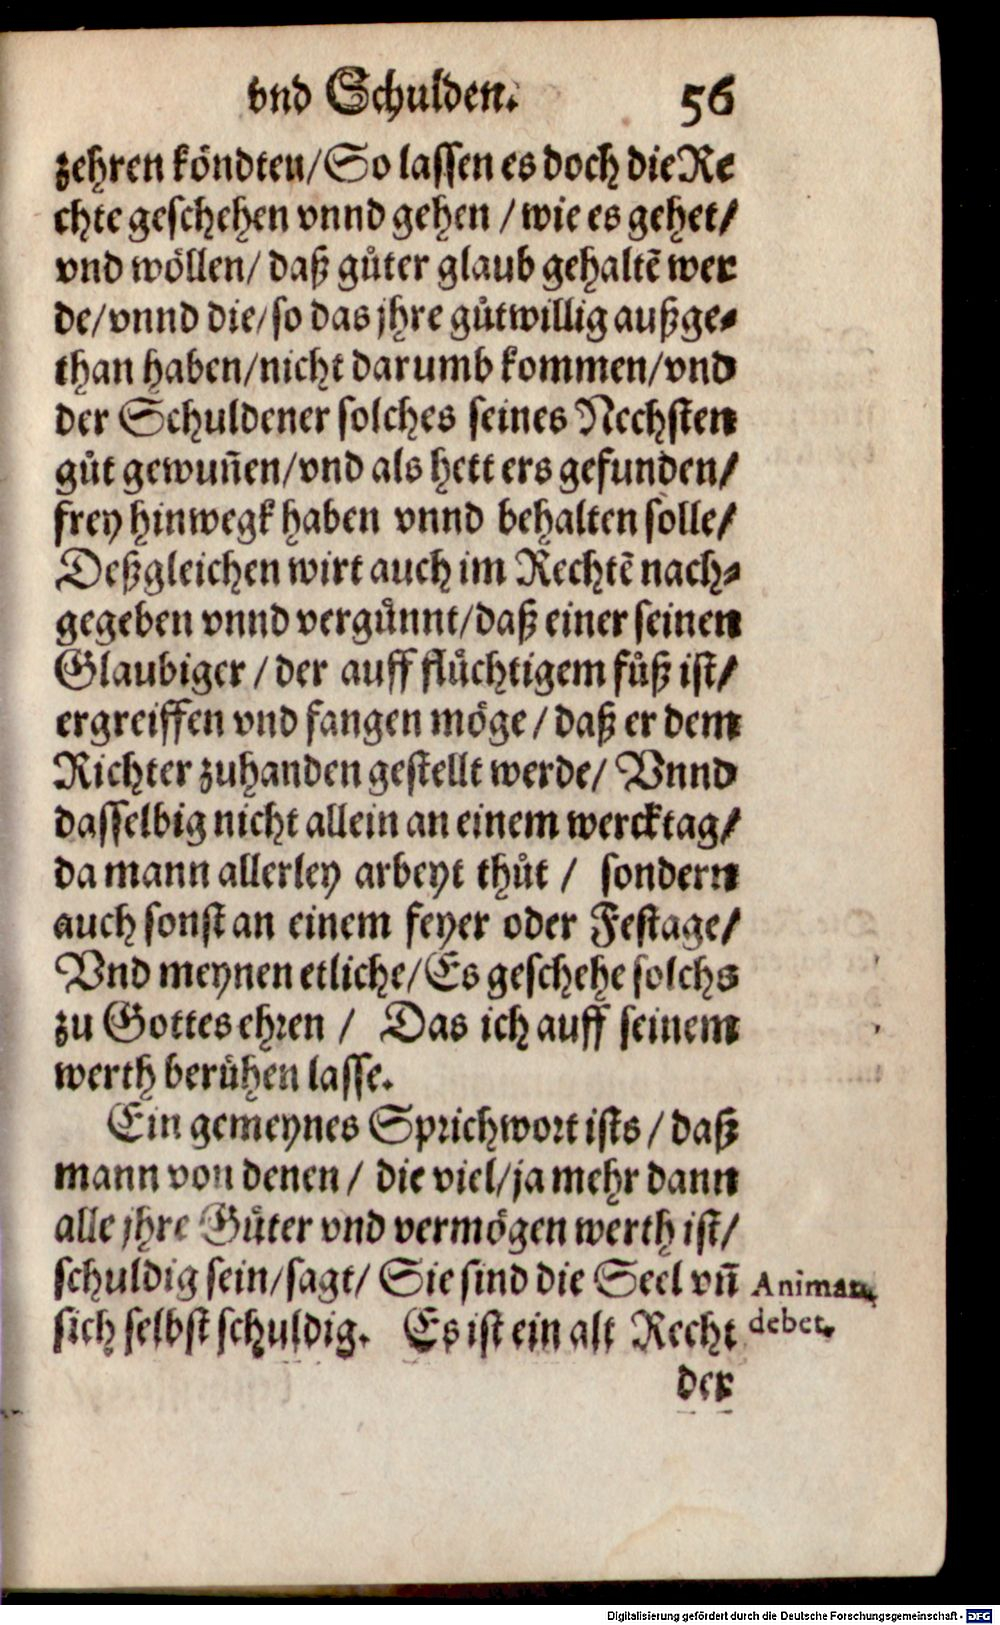 vnd Schulden. 56
zehren köndten/So lassen es doch die Re
chte geschehen vnnd gehen / wie es gehet/
vnd wöllen/ daß gůter glaub gehaltẽ wer
de/vnnd die/so das jhre gůtwillig außge⸗
than haben/nicht darumb kommen/vnd
der Schuldener solches seines Nechsten
gůt gewun̄en/vnd als hett ers gefunden/
frey hinwegk haben vnnd behalten solle/
Deßgleichen wirt auch im Rechtẽ nach⸗
gegeben vnnd vergünnt/daß einer seinen
Glaubiger / der auff flüchtigem fůß ist/
ergreiffen vnd fangen möge / daß er dem
Richter zuhanden gestellt werde/ Vnnd
dasselbig nicht allein an einem wercktag/
da mann allerley arbeyt thůt / sondern
auch sonst an einem feyer oder Festage/
Vnd meynen etliche/Es geschehe solchs
zu Gottes ehren / Das ich auff seinem
werth berůhen lasse.
Ein gemeynes Sprichwort ists / daß
mann von denen / die viel/ja mehr dann
alle jhre Güter vnd vermögen werth ist/
schuldig sein/sagt/ Sie sind die Seel vn̄
sich selbst schuldig. Es ist ein alt Recht
Animam
debet.
der
Digitalisierung gefördert durch die Deutsche Forschungsgemeinschaft - DFG